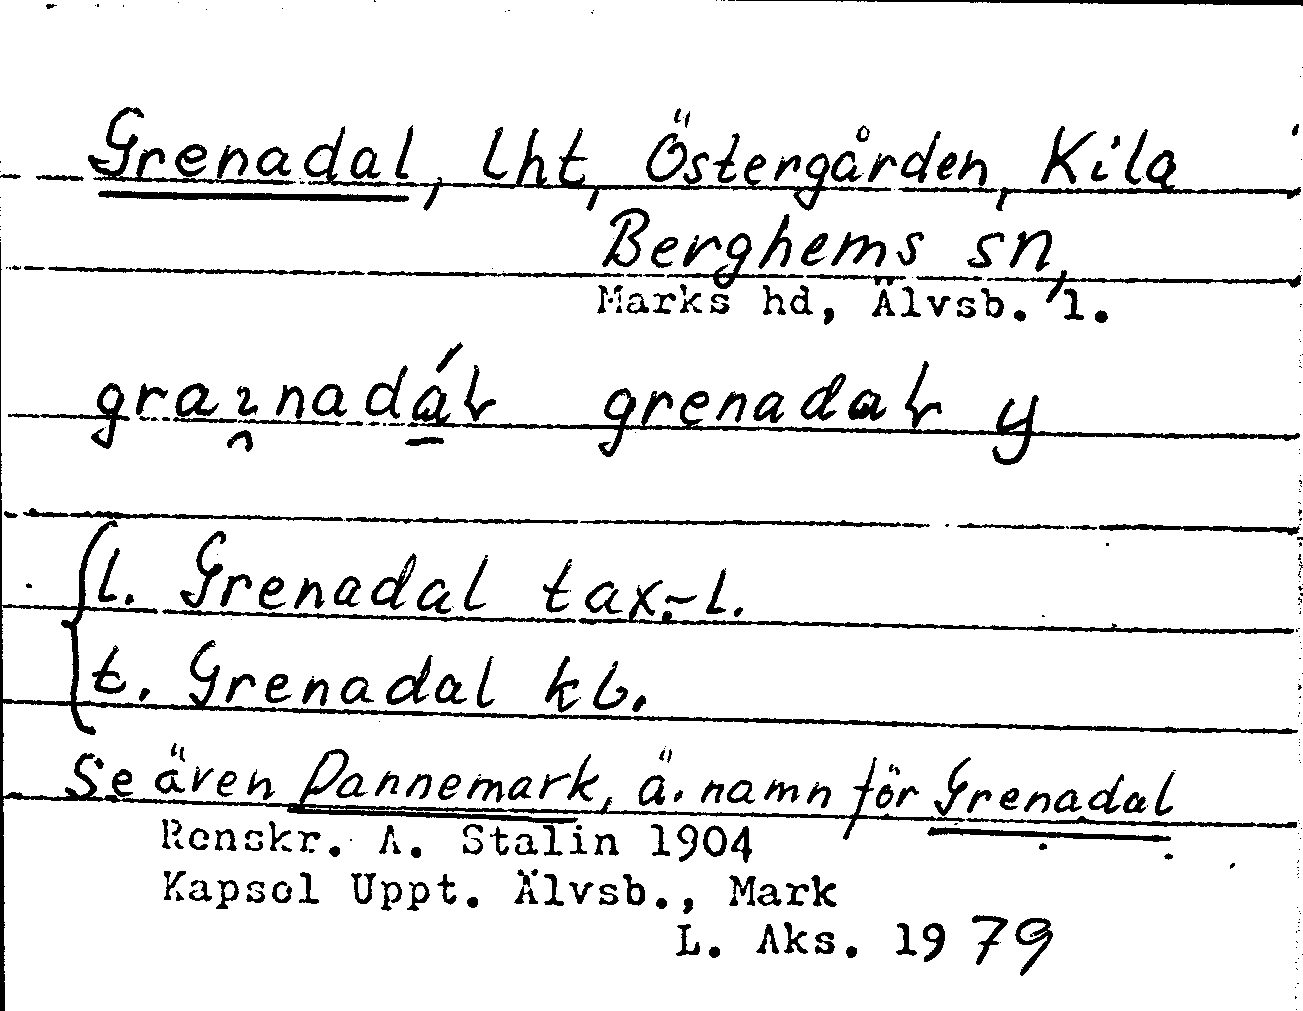 Grenadal, lht, Östergården, Kila
Berghems sn,
Marks hd, Älvsb. l.
grenadaƚ y
{ l. Grenadal tax.-l.
t. Grenadal kb.
Se även Dannemark, ä. namn för Grenadal
Renskr. A. Stalin 1904
Kapsel Uppt. Älvsb., Mark
L. Aks. 1979